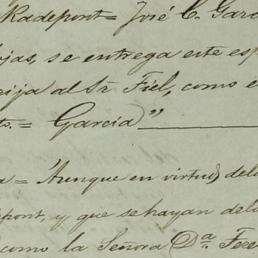 Radepont = José C. Garc
jas, se entrega este es
rija al Sr. Fiel, como e
to. = Garcia"
a = Aunque en virtud dela
pont, y que se hayan del
como la Señora Da. Fere